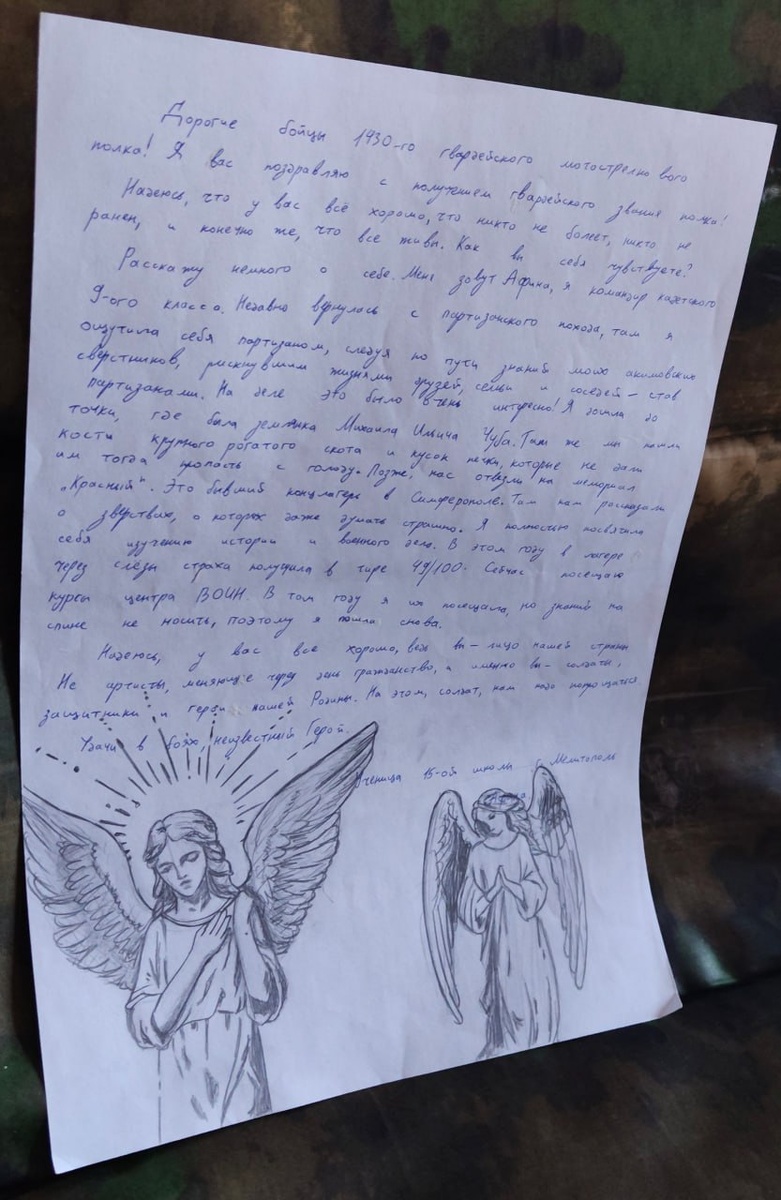 Дорогие бойцы 1430-го гвардейского мотострелкового
полка! Я вас поздравляю с получением гвардейского звания полка!
Надеюсь, что у вас всё хорошо, что никто не болеет, никто не
ранен, и конечно же, что все живы. Как вы себя чувствуете?
Расскажу немного о себе. Меня зовут Афина, я командир кадетского
9-ого класса. Недавно вернулась с партизанского похода, там я
ощутила себя партизаном, следуя по пути знаний моих акимовских
сверстников, рискнувшим жизнями друзей, семьи и соседей – став
партизанами. На деле это было очень интересно! Я дошла до
точки, где была землянка Михаила Ильича Чуба. Там же мы нашли
кости крупного рогатого скота и кусок печки, которые не дали
им тогда пропасть с голоду. Позже, нас отвезли на мемориал
„Красный". Это бывший концлагерь в Симферополе. Там нам рассказали
о зверствах, о которых даже думать страшно. Я полностью посвятила
себя изучению истории и военного дела. В этом году в лагере
через слёзы страха получила в тире 49/100. Сейчас посещаю
курсы центра ВОИН. В том году я их посещала, но знаний на
спине не носить, поэтому я пошла снова.
Надеюсь, у вас все хорошо, ведь вы – лицо нашей страны
Не артисты, меняющие через день гражданство, а именно вы – солдаты,
защитники и герои нашей Родины. На этом, солдат, нам надо попрощаться
Удачи в боях, неизвестный Герой.
Ученица 15-ой школы г. Мелитополь